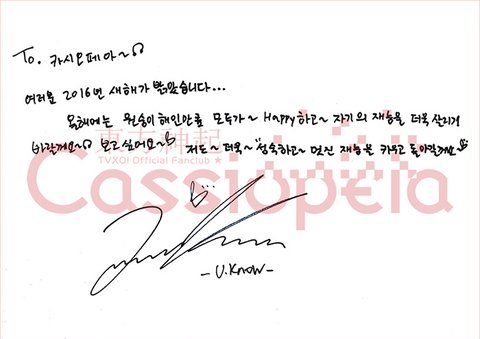 To. 카시오페아~
여러분 2016년 새해가 밝았습니다...
올해에는 원숭이해인만큼 모두가~ Happy하고~ 자기의 재능을 더욱 살리기
바랄게요~ 보고싶어요~ 저도~ 더욱~ 성숙하고~ 멋진 재능을 키우고 돌아갈게요
東方神起
TVXQ! Official Fanclub ★
Cassiopeia
-U.Know-